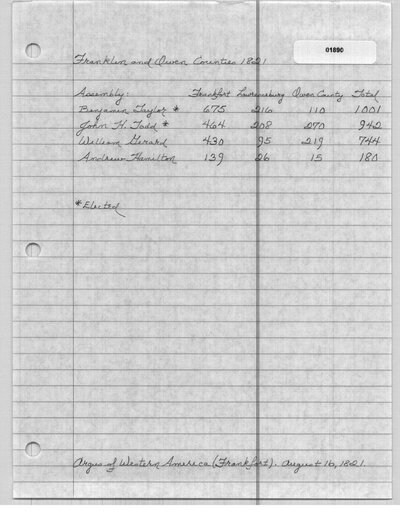 01890
Franklin and Owen Counties 1821
Assembly: Frankfort Lawrenceburg Owen County Total
Benjamin Taylor * 675 216 110 1001
John H. Todd * 464 208 270 942
William Gerard 430 95 219 744
Andrew Hamilton 139 26 15 180
* Elected
Argus of Western America (Frankfort). August 16, 1821.